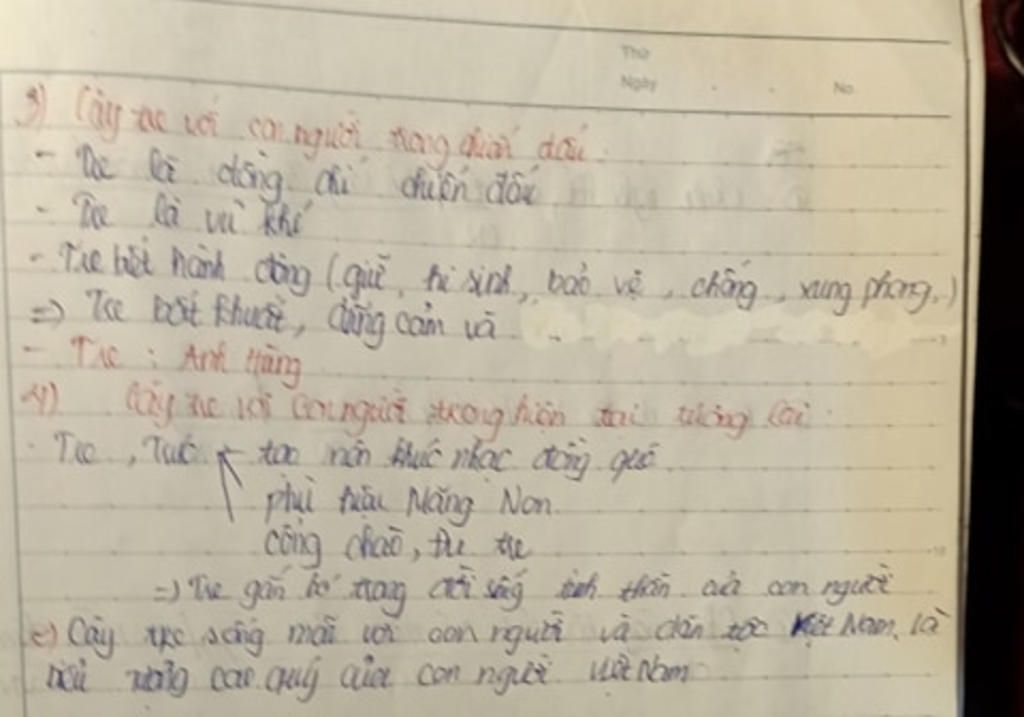 Thứ
Ngày No.
3) Cây tre với con người trong chiến đấu.
- Tre là đồng chí chiến đấu
- Tre là vũ khí
- Tre biết hành động (giữ, hi sinh, bảo vệ, chống, xung phong.)
=> Tre bất khuất, dũng cảm và
- Tre : Anh Hùng
4) Cây tre với con người trong hiện tại tương lai.
- Tre, Trúc tạo nên khúc nhạc đồng quê
phù hiệu Măng Non.
cổng chào, đu tre
=) Tre gắn bó trong đời sống tinh thần của con người
Cây tre sống mãi với con người và dân tộc Việt Nam, là
biểu tượng cao quý của con người Việt Nam